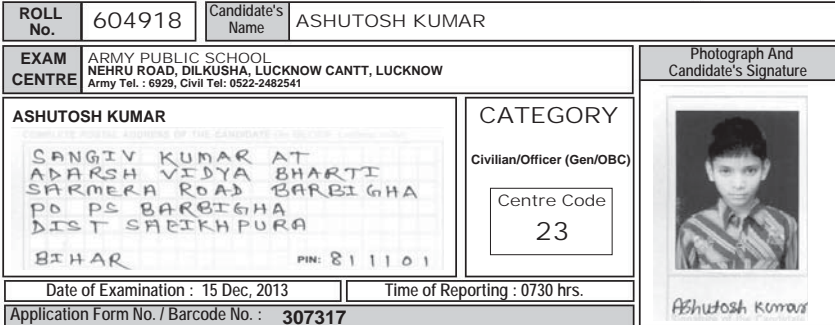 ROLL No. 604918 Candidate's Name ASHUTOSH KUMAR
EXAM CENTRE
ARMY PUBLIC SCHOOL
NEHRU ROAD, DILKUSHA, LUCKNOW CANTT, LUCKNOW
Army Tel. : 6929, Civil Tel: 0522-2482541
Photograph And
Candidate's Signature
ASHUTOSH KUMAR
COMPLETE POSTAL ADDRESS OF THE CANDIDATE
SANGIV KUMAR AT
ADARSH VIDYA BHARTI
SARMERA ROAD BARBIGHA
PO PS BARBIGHA
DIST SHEIKHPURA
BIHAR PIN: 811101
CATEGORY
Civilian/Officer (Gen/OBC)
Centre Code
23
Ashutosh Kumar
Date of Examination : 15 Dec, 2013 Time of Reporting : 0730 hrs.
Application Form No. / Barcode No. : 307317